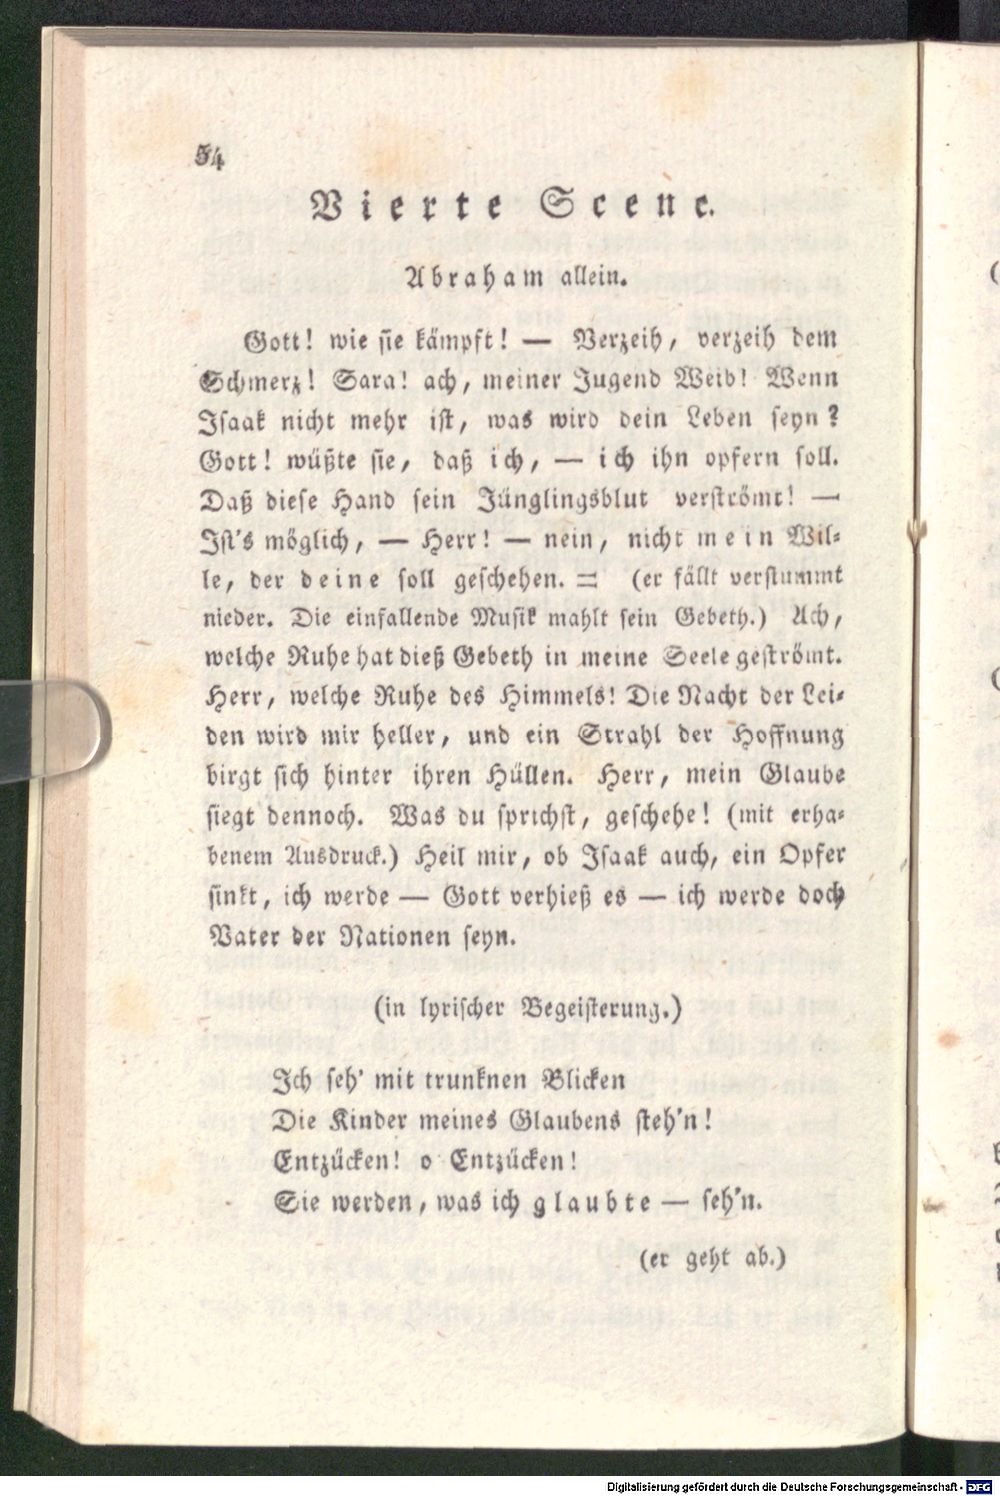 54
Vierte Scene.
Abraham allein.
Gott! wie sie kämpft! — Verzeih, verzeih dem
Schmerz! Sara! ach, meiner Jugend Weib! Wenn
Isaak nicht mehr ist, was wird dein Leben seyn?
Gott! wüßte sie, daß ich, — ich ihn opfern soll.
Daß diese Hand sein Jünglingsblut verströmt! —
Ist's möglich, — Herr! — nein, nicht mein Wil-
le, der deine soll geschehen. = (er fällt verstummt
nieder. Die einfallende Musik mahlt sein Gebeth.) Ach,
welche Ruhe hat dieß Gebeth in meine Seele geströmt.
Herr, welche Ruhe des Himmels! Die Nacht der Lei-
den wird mir heller, und ein Strahl der Hoffnung
birgt sich hinter ihren Hüllen. Herr, mein Glaube
siegt dennoch. Was du sprichst, geschehe! (mit erha-
benem Ausdruck.) Heil mir, ob Isaak auch, ein Opfer
sinkt, ich werde — Gott verhieß es — ich werde doch
Vater der Nationen seyn.
(in lyrischer Begeisterung.)
Ich seh' mit trunknen Blicken
Die Kinder meines Glaubens steh'n!
Entzücken! o Entzücken!
Sie werden, was ich glaubte — seh'n.
(er geht ab.)
Digitalisierung gefördert durch die Deutsche Forschungsgemeinschaft - DFG